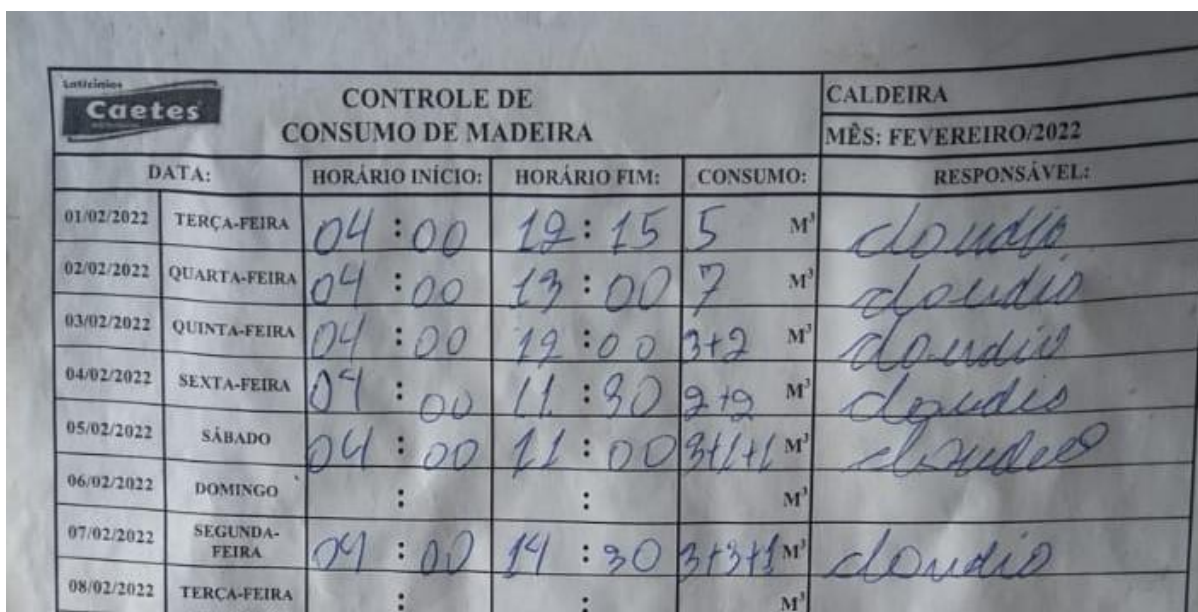 Laticínios
Caetes
CONTROLE DE
CONSUMO DE MADEIRA
CALDEIRA
MÊS: FEVEREIRO/2022
DATA: HORÁRIO INÍCIO: HORÁRIO FIM: CONSUMO: RESPONSÁVEL:
01/02/2022 TERÇA-FEIRA 04:00 12:15 5 M³ claudio
02/02/2022 QUARTA-FEIRA 04:00 13:00 7 M³ claudio
03/02/2022 QUINTA-FEIRA 04:00 12:00 3+2 M³ claudio
04/02/2022 SEXTA-FEIRA 04:00 11:30 2+2 M³ claudio
05/02/2022 SÁBADO 04:00 11:00 3+1+1 M³ claudio
06/02/2022 DOMINGO : : M³
07/02/2022 SEGUNDA-
FEIRA 04:00 14:30 3+3+1 M³ claudio
08/02/2022 TERÇA-FEIRA : : M³